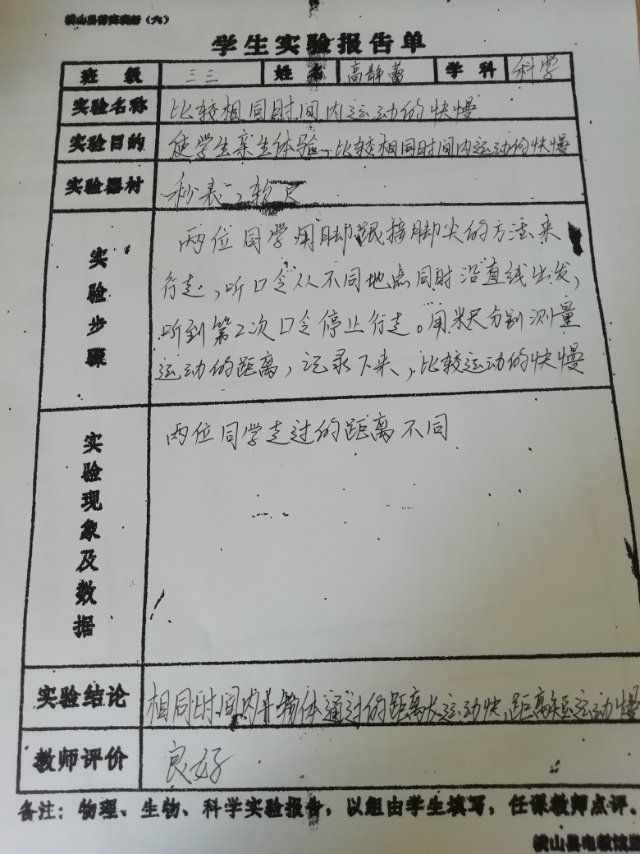 学生实验报告单
班级 三三 姓名 高静蕾 学科 科学
实验名称 比较相同时间内运动的快慢
实验目的 使学生亲生体验、比较相同时间内运动的快慢
实验器材 秒表、软尺
实验步骤
两位同学用脚跟接脚尖的方法来
行走，听口令从不同地点同时沿直线出发，
听到第2次口令停止行走。用米尺分别测量
运动的距离，记录下来，比较运动的快慢
实验现象及数据
两位同学走过的距离不同
实验结论 相同时间内物体通过的距离长运动快,距离短运动慢
教师评价 良好
备注：物理、生物、科学实验报告，以组由学生填写，任课教师点评。